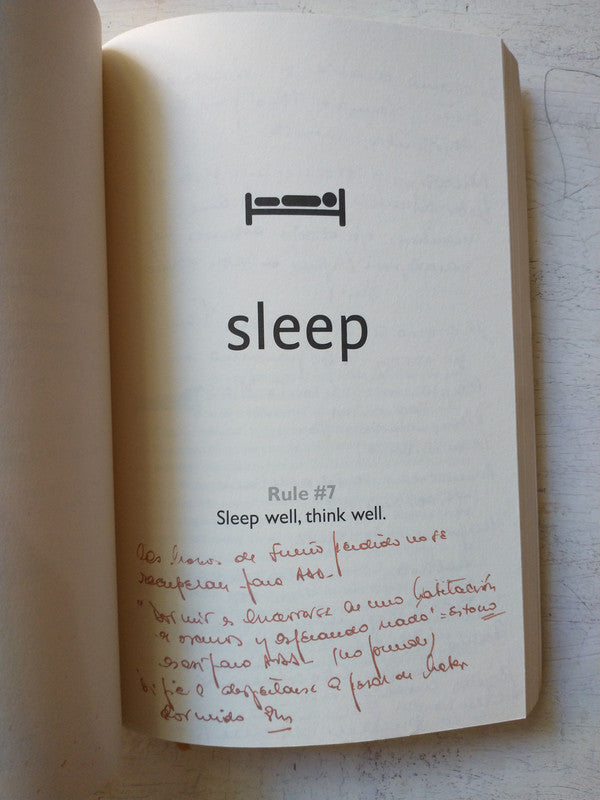 sleep
Rule #7
Sleep well, think well.
Las horas de sueño perdido no se
recuperan para
"Dormir es encerrarse en una habitación
a oscuras y esperando nada" -
es así para (no puede)
a pesar de haber
dormido